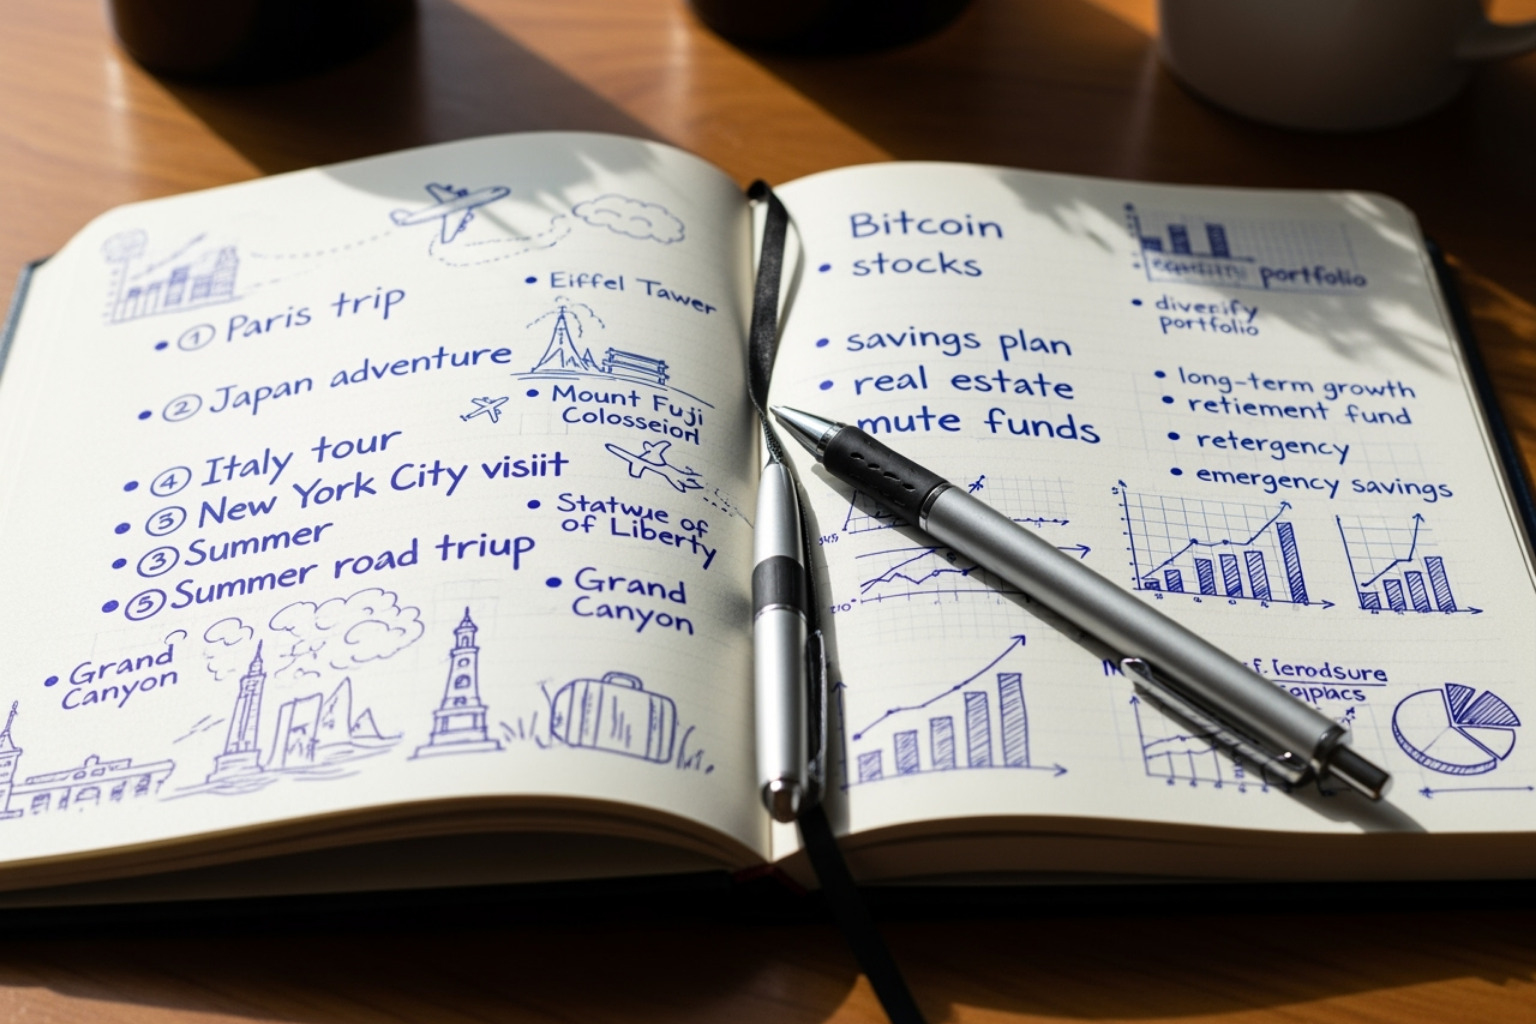 • ① Paris trip
• ② Japan adventure
• ④ Italy tour
• ⑤ New York City visiit
• ③ Summer
• ⑤ Summer road triup
• Grand
Canyon
• Eiffel Tawer
• Mount Fuji
Colosseiorl
• Statwue of
of Liberty
• Grand
Canyon
Bitcoin
• stocks
• savings plan
• real estate
mute funds
portfolio
• diverify
portfolio
• long-term growth
• retiement fund
• retergency
• emergency savings